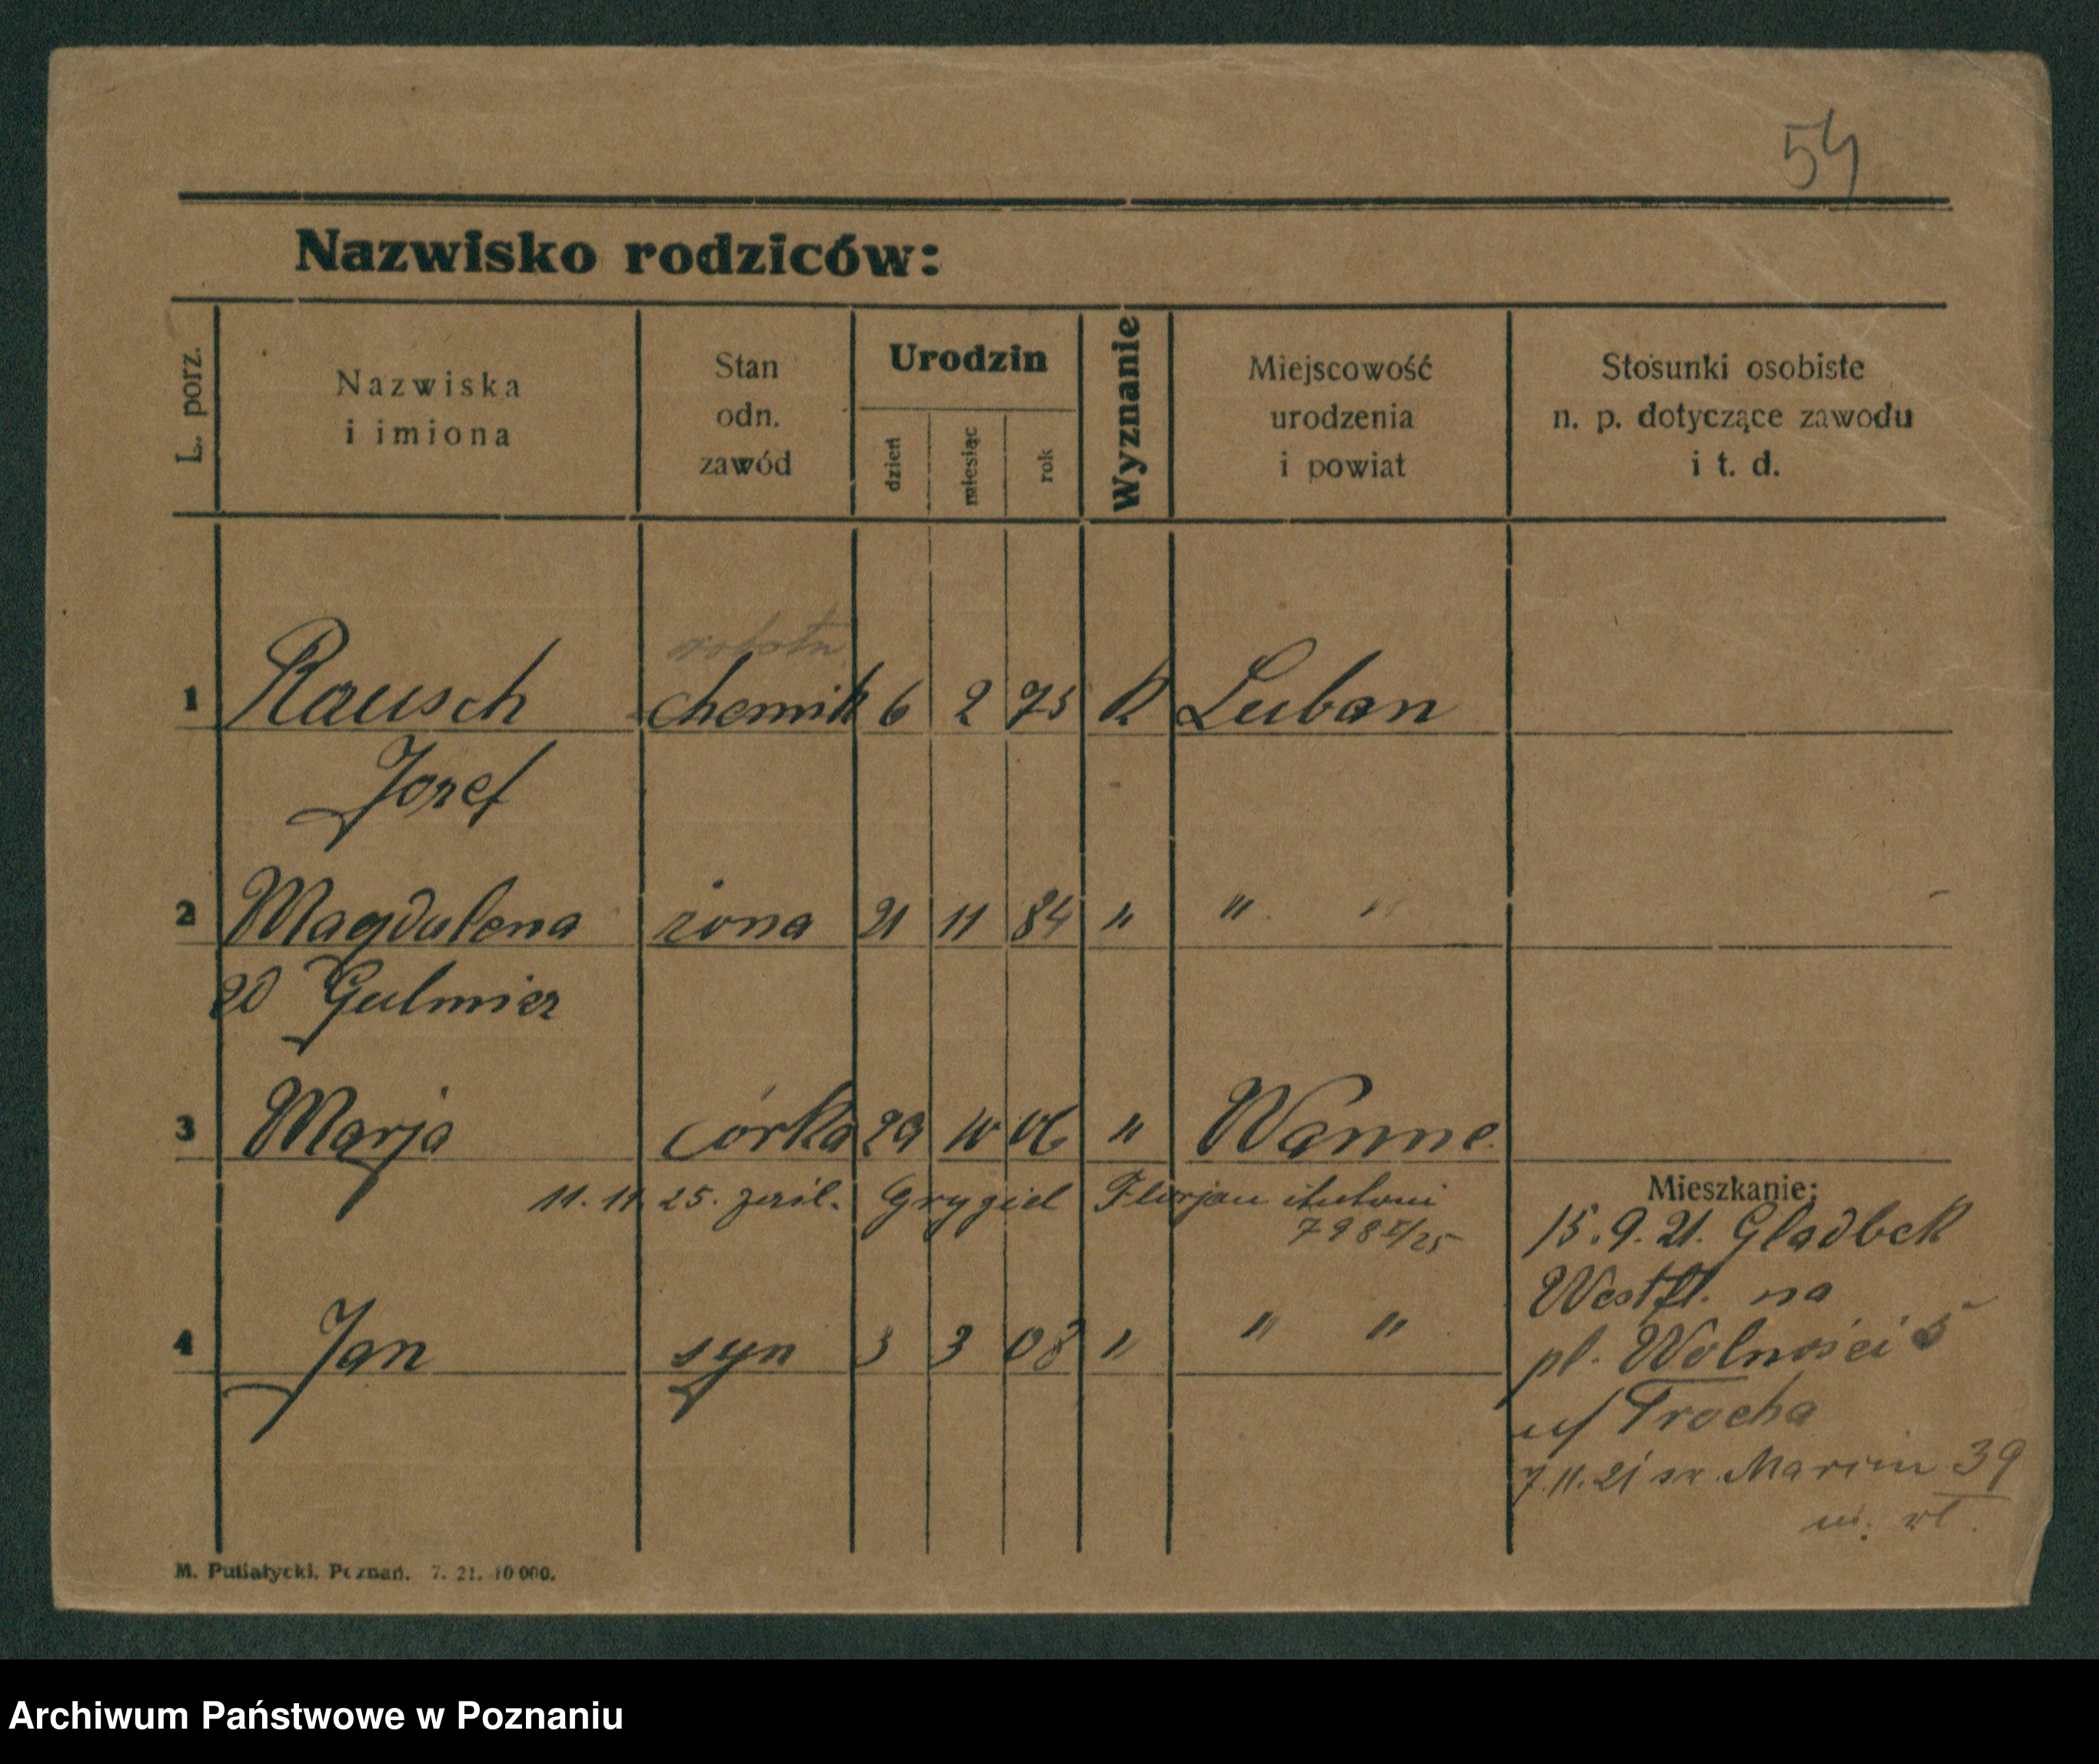 54
Nazwisko rodziców:
L. porz.
Nazwiska
i imiona
Stan
odn.
zawód
Urodzin
dzień
miesiąc
rok
Wyznanie
Miejscowość
urodzenia
i powiat
Stosunki osobiste
n. p. dotyczące zawodu
i t. d.
robotn.
1 Rausch chemik 6 2 75 K Luban
Jozef
2 Magdalena żona 21 11 84 " " "
Gulmicz
3 Marja córka 29 10 06 " Wanne
11. 11. 25. Grygiel Florjan
798 /25
4 Jan syn 3 3 08 " " "
Mieszkanie:
15.9.21. Gladbek
Westfl. na
pl. Wolności 5
u/ Trocha
7.11.21 św. Marcin 39
M. Putiatycki, Poznań. 7. 21. 10 000.
Archiwum Państwowe w Poznaniu